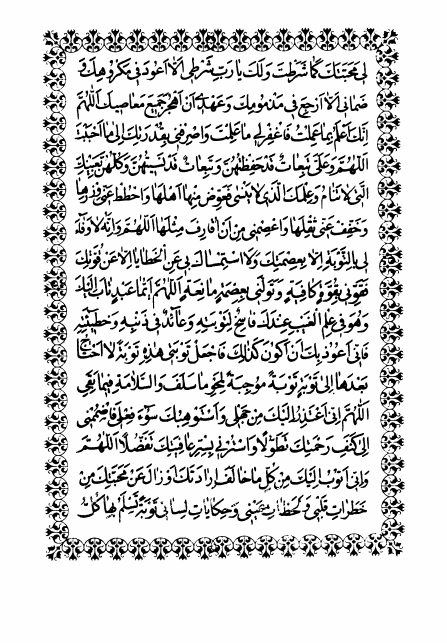 لي محبتك كما شرطت ولك يا رب شرطي ألا أعود في مكروهك و
ضماني ألا أرجع في مذمومك وعهدي أن أهجر جميع معاصيك اللهم
إنك أعلم بما عملت فاغفر لي ما علمت واصرفني بقدرتك إلى ما أحببت
اللهم وعلي تبعات قد حفظتهن وتبعات قد نسيتهن وكلهن بعينك
التي لا تنام وعلمك الذي لا ينسى فعوض منها أهلها واحطط عني وزرها
وخفف عني ثقلها واعصمني من أن أقارف مثلها اللهم وإنه لا وفاء
لي بالتوبة إلا بعصمتك ولا استمساك بي عن الخطايا إلا عن قوتك
فقوني بقوة كافية وتولني بعصمة مانعة اللهم أيما عبد تاب إليك
وهو في علم الغيب عندك فاسخ لتوبته وعائد في ذنبه وخطيئته
فإني أعوذ بك أن أكون كذلك فاجعل توبتي هذه توبة لا أحتاج
بعدها إلى توبة توبة موجبة لمحو ما سلف والسلامة فيما بقي
اللهم إني أعتذر إليك من جهلي وأستوهبك سوء فعلي فاضممني
إلى كنف رحمتك تطولا واسترني بستر عافيتك تفضلا اللهم
وإني أتوب إليك من كل ما خالف إرادتك أو زال عن محبتك من
خطرات قلبي ولحظات عيني وحكايات لساني توبة تسلم بها كل